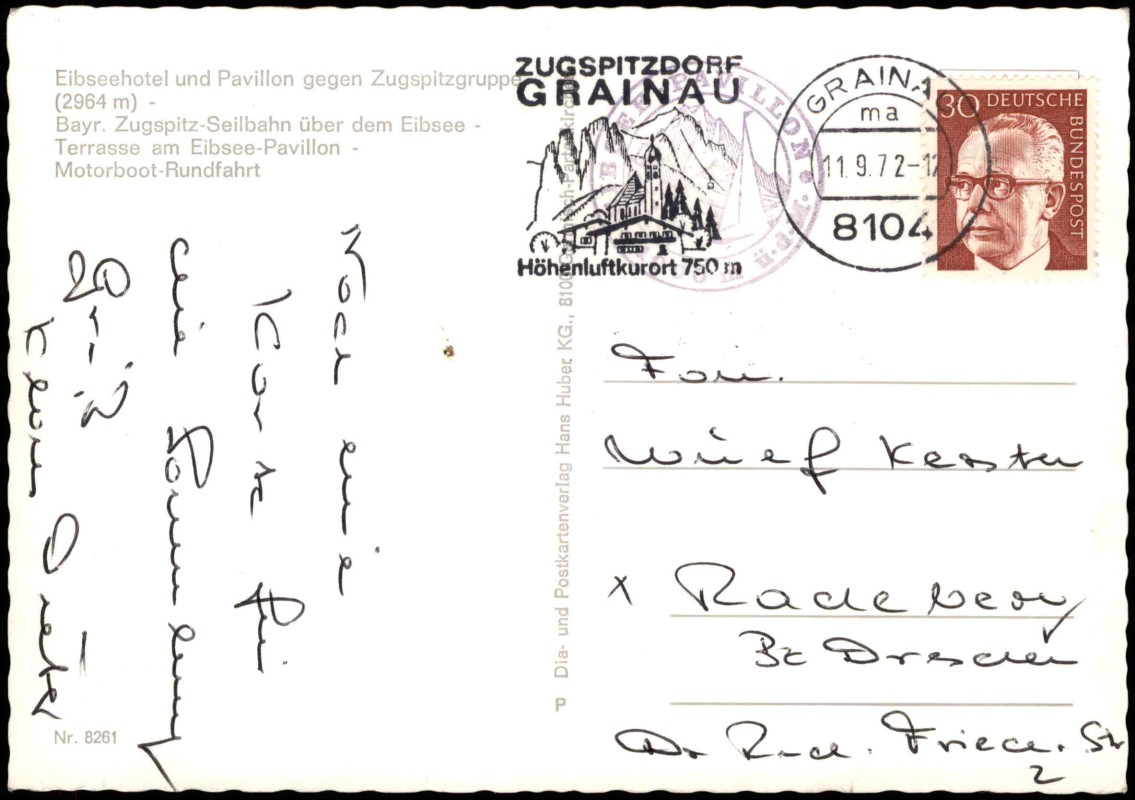 Eibseehotel und Pavillon gegen Zugspitzgruppe
(2964 m) -
Bayr. Zugspitz-Seilbahn über dem Eibsee -
Terrasse am Eibsee-Pavillon -
Motorboot-Rundfahrt
ZUGSPITZDORF
GRAINAU
Höhenluftkurort 750 m
PAVILLON
GRAINAU
ma
11.9.72-12
8104
30 DEUTSCHE
BUNDESPOST
Noch eine
Karte für
die
Gruß
Dia- und Postkartenverlag Hans Huber KG., 8100 Garmisch-Partenkirchen
P
Fam.
Kersten
x Radeberg
Bz Dresden
Dr Rud. Friedr. Str
2
Nr. 8261